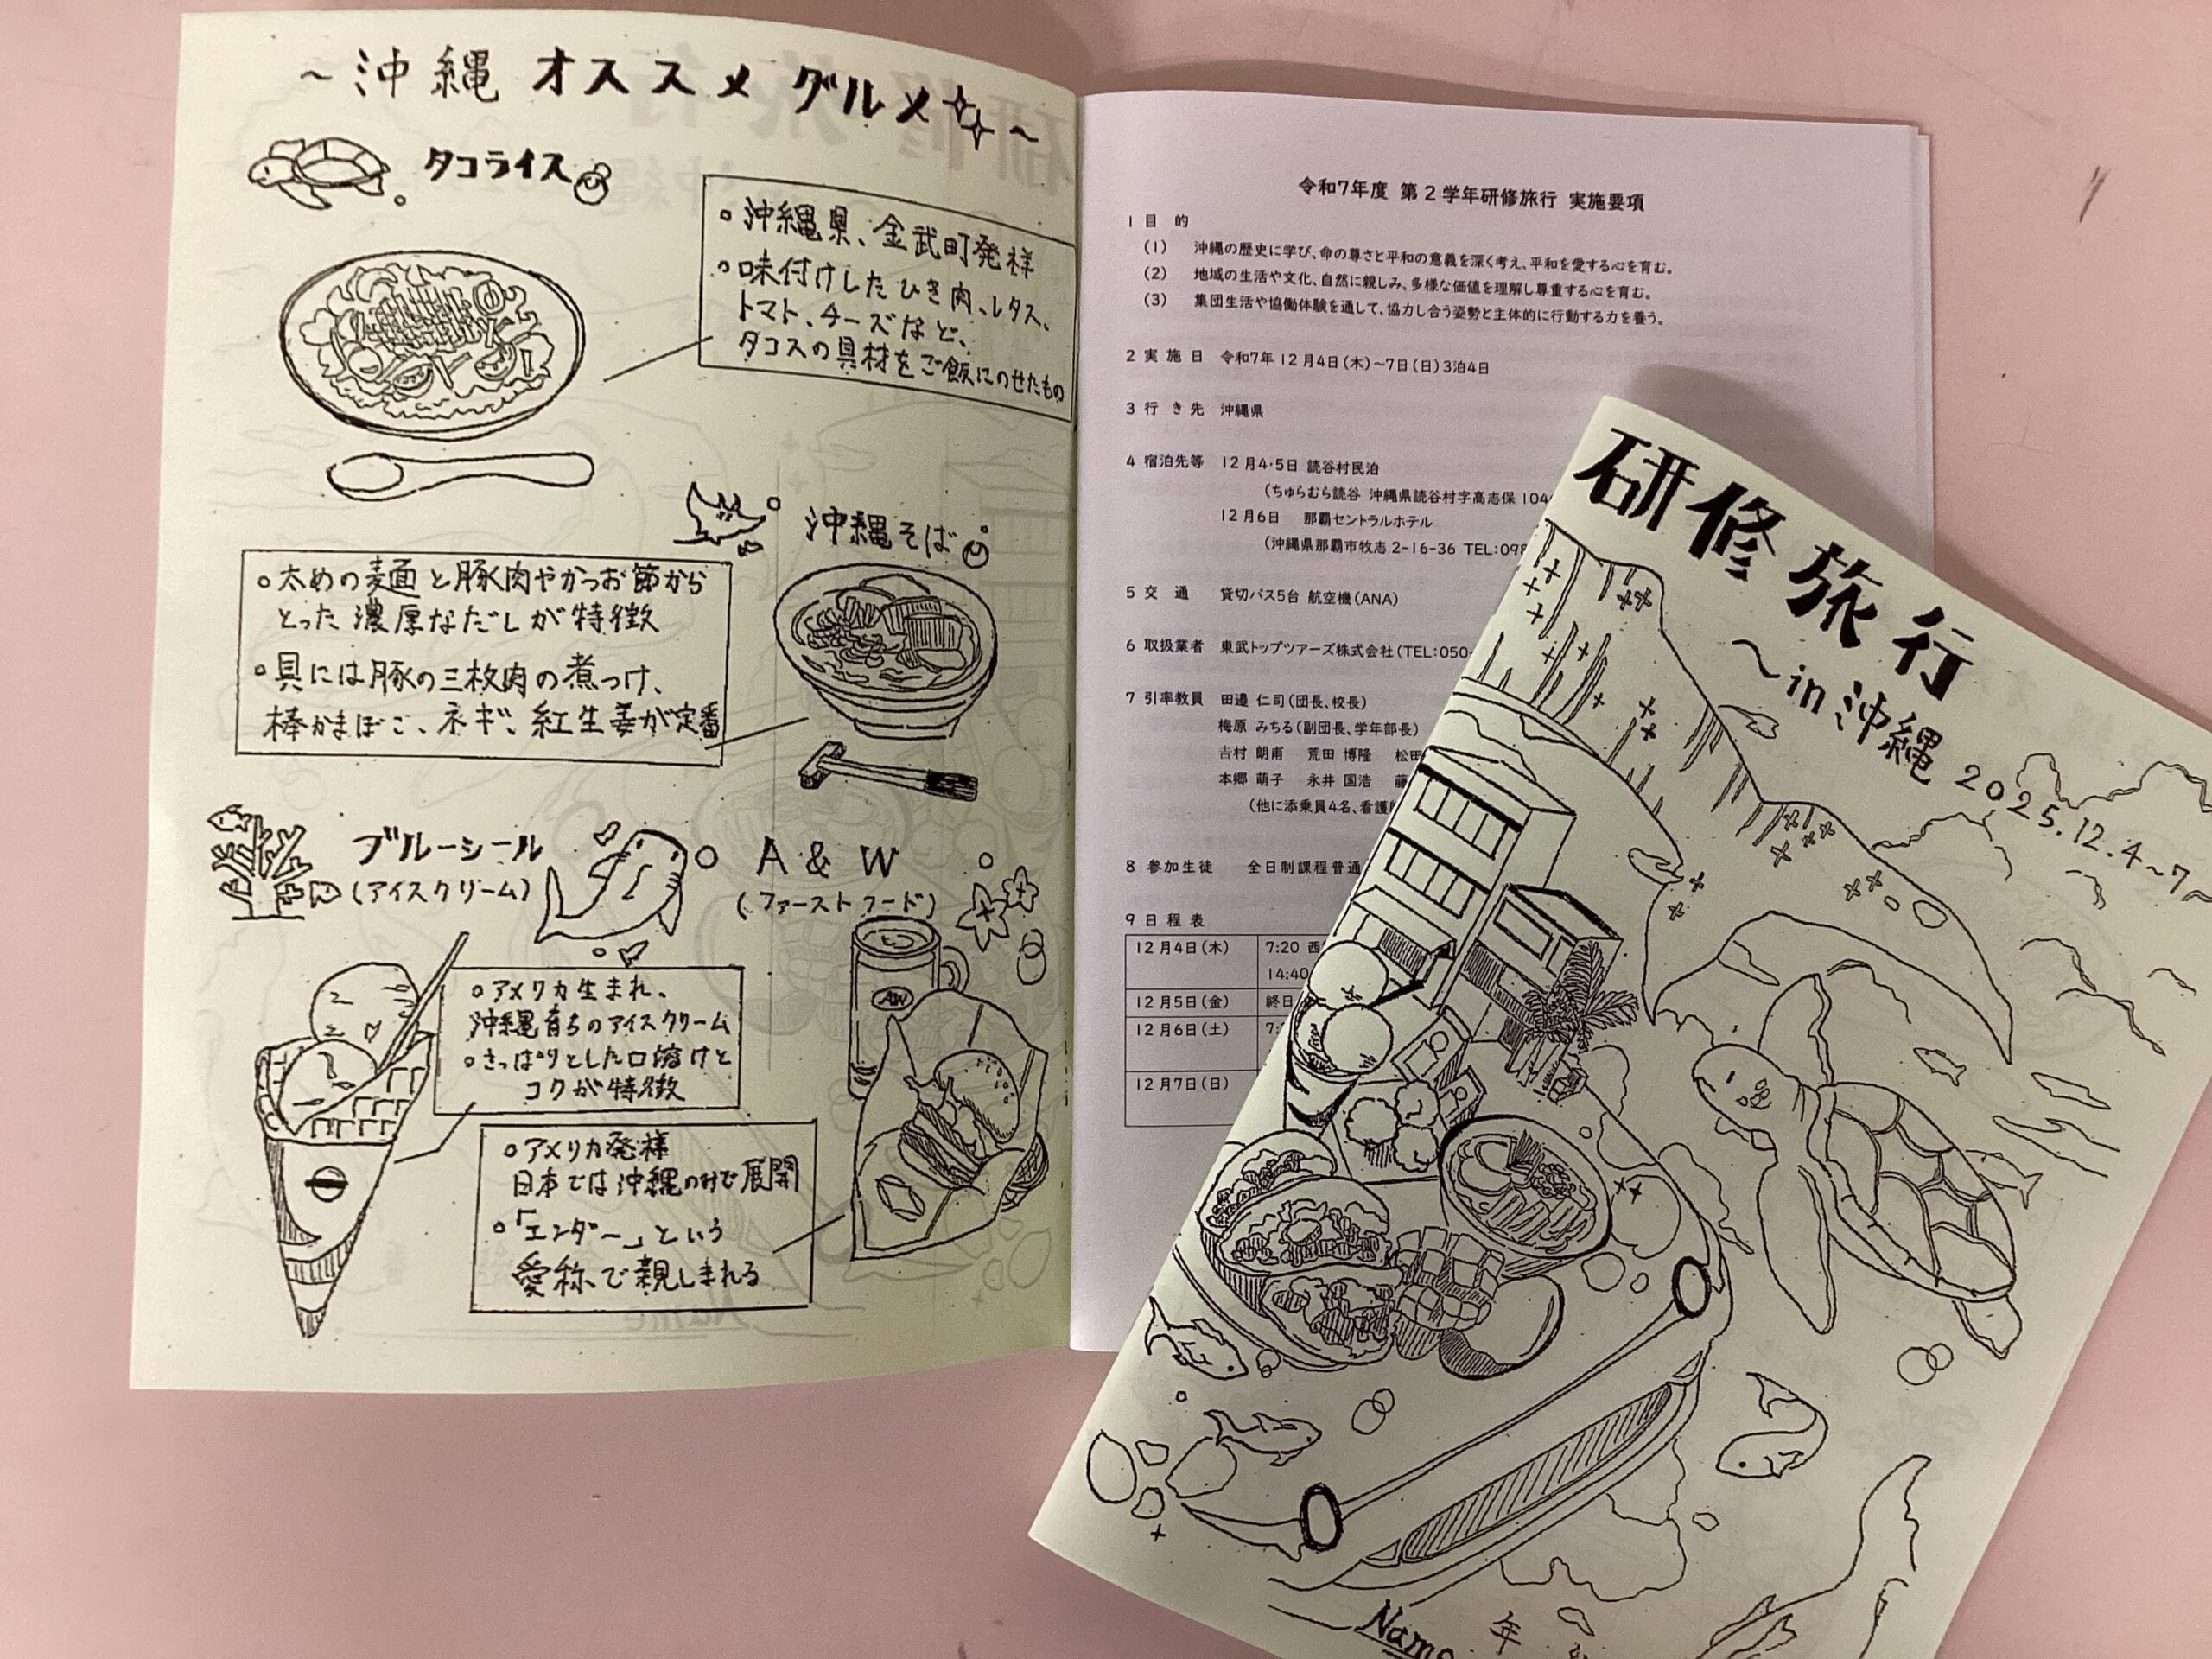 ～沖縄オススメグルメ～
タコライス
○沖縄県、金武町発祥
○味付けしたひき肉、レタス、
トマト、チーズなど、
タコスの具材をご飯にのせたもの
沖縄そば
○太めの麺と豚肉やかつお節から
とった濃厚なだしが特徴
○具には豚の三枚肉の煮つけ、
棒かまぼこ、ネギ、紅生姜が定番
ブルーシール
(アイスクリーム)
○アメリカ生まれ、
沖縄育ちのアイスクリーム
○さっぱりとした口溶けと
コクが特徴
A & W
(ファーストフード)
A&W
○アメリカ発祥
日本では沖縄のみで展開
○「エンダー」という
愛称で親しまれる
令和7年度 第2学年研修旅行 実施要項
1 目 的
(1) 沖縄の歴史に学び、命の尊さと平和の意義を深く考え、平和を愛する心を育む。
(2) 地域の生活や文化、自然に親しみ、多様な価値を理解し尊重する心を育む。
(3) 集団生活や協働体験を通して、協力し合う姿勢と主体的に行動する力を養う。
2 実 施 日 令和7年12月4日(木)～7日(日)3泊4日
3 行 き 先 沖縄県
4 宿泊先等 12月4・5日 読谷村民泊
(ちゅらむら読谷 沖縄県読谷村字高志保 104
12月6日 那覇セントラルホテル
(沖縄県那覇市牧志 2-16-36 TEL:098
5 交 通 貸切バス5台 航空機(ANA)
6 取扱業者 東武トップツアーズ株式会社(TEL:050-
7 引率教員 田邉 仁司(団長、校長)
梅原 みちる(副団長、学年部長)
吉村 朗甫 荒田 博隆 松田
本郷 萌子 永井 国浩 藤
(他に添乗員4名、看護
8 参加生徒 全日制課程普通
9 日 程 表
12月4日(木) 7:20 西
14:40
12月5日(金) 終日
12月6日(土) 7:
12月7日(日)
研修旅行
～in 沖縄 2025.12.4～7～
Name
年